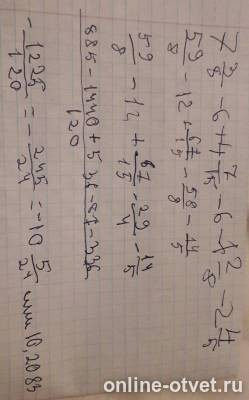 7 3/8 - 6 + 4 7/15 - 6 - 1 2/8 - 2 4/5
59/8 - 12 + 67/15 - 58/8 - 14/5
59/8 - 12 + 67/15 - 29/4 - 14/5
885 - 1440 + 536 - 87 - 336 / 120
- 1225/120 = - 245/24 = -10 5/24 или 10,2083
online-otvet.ru